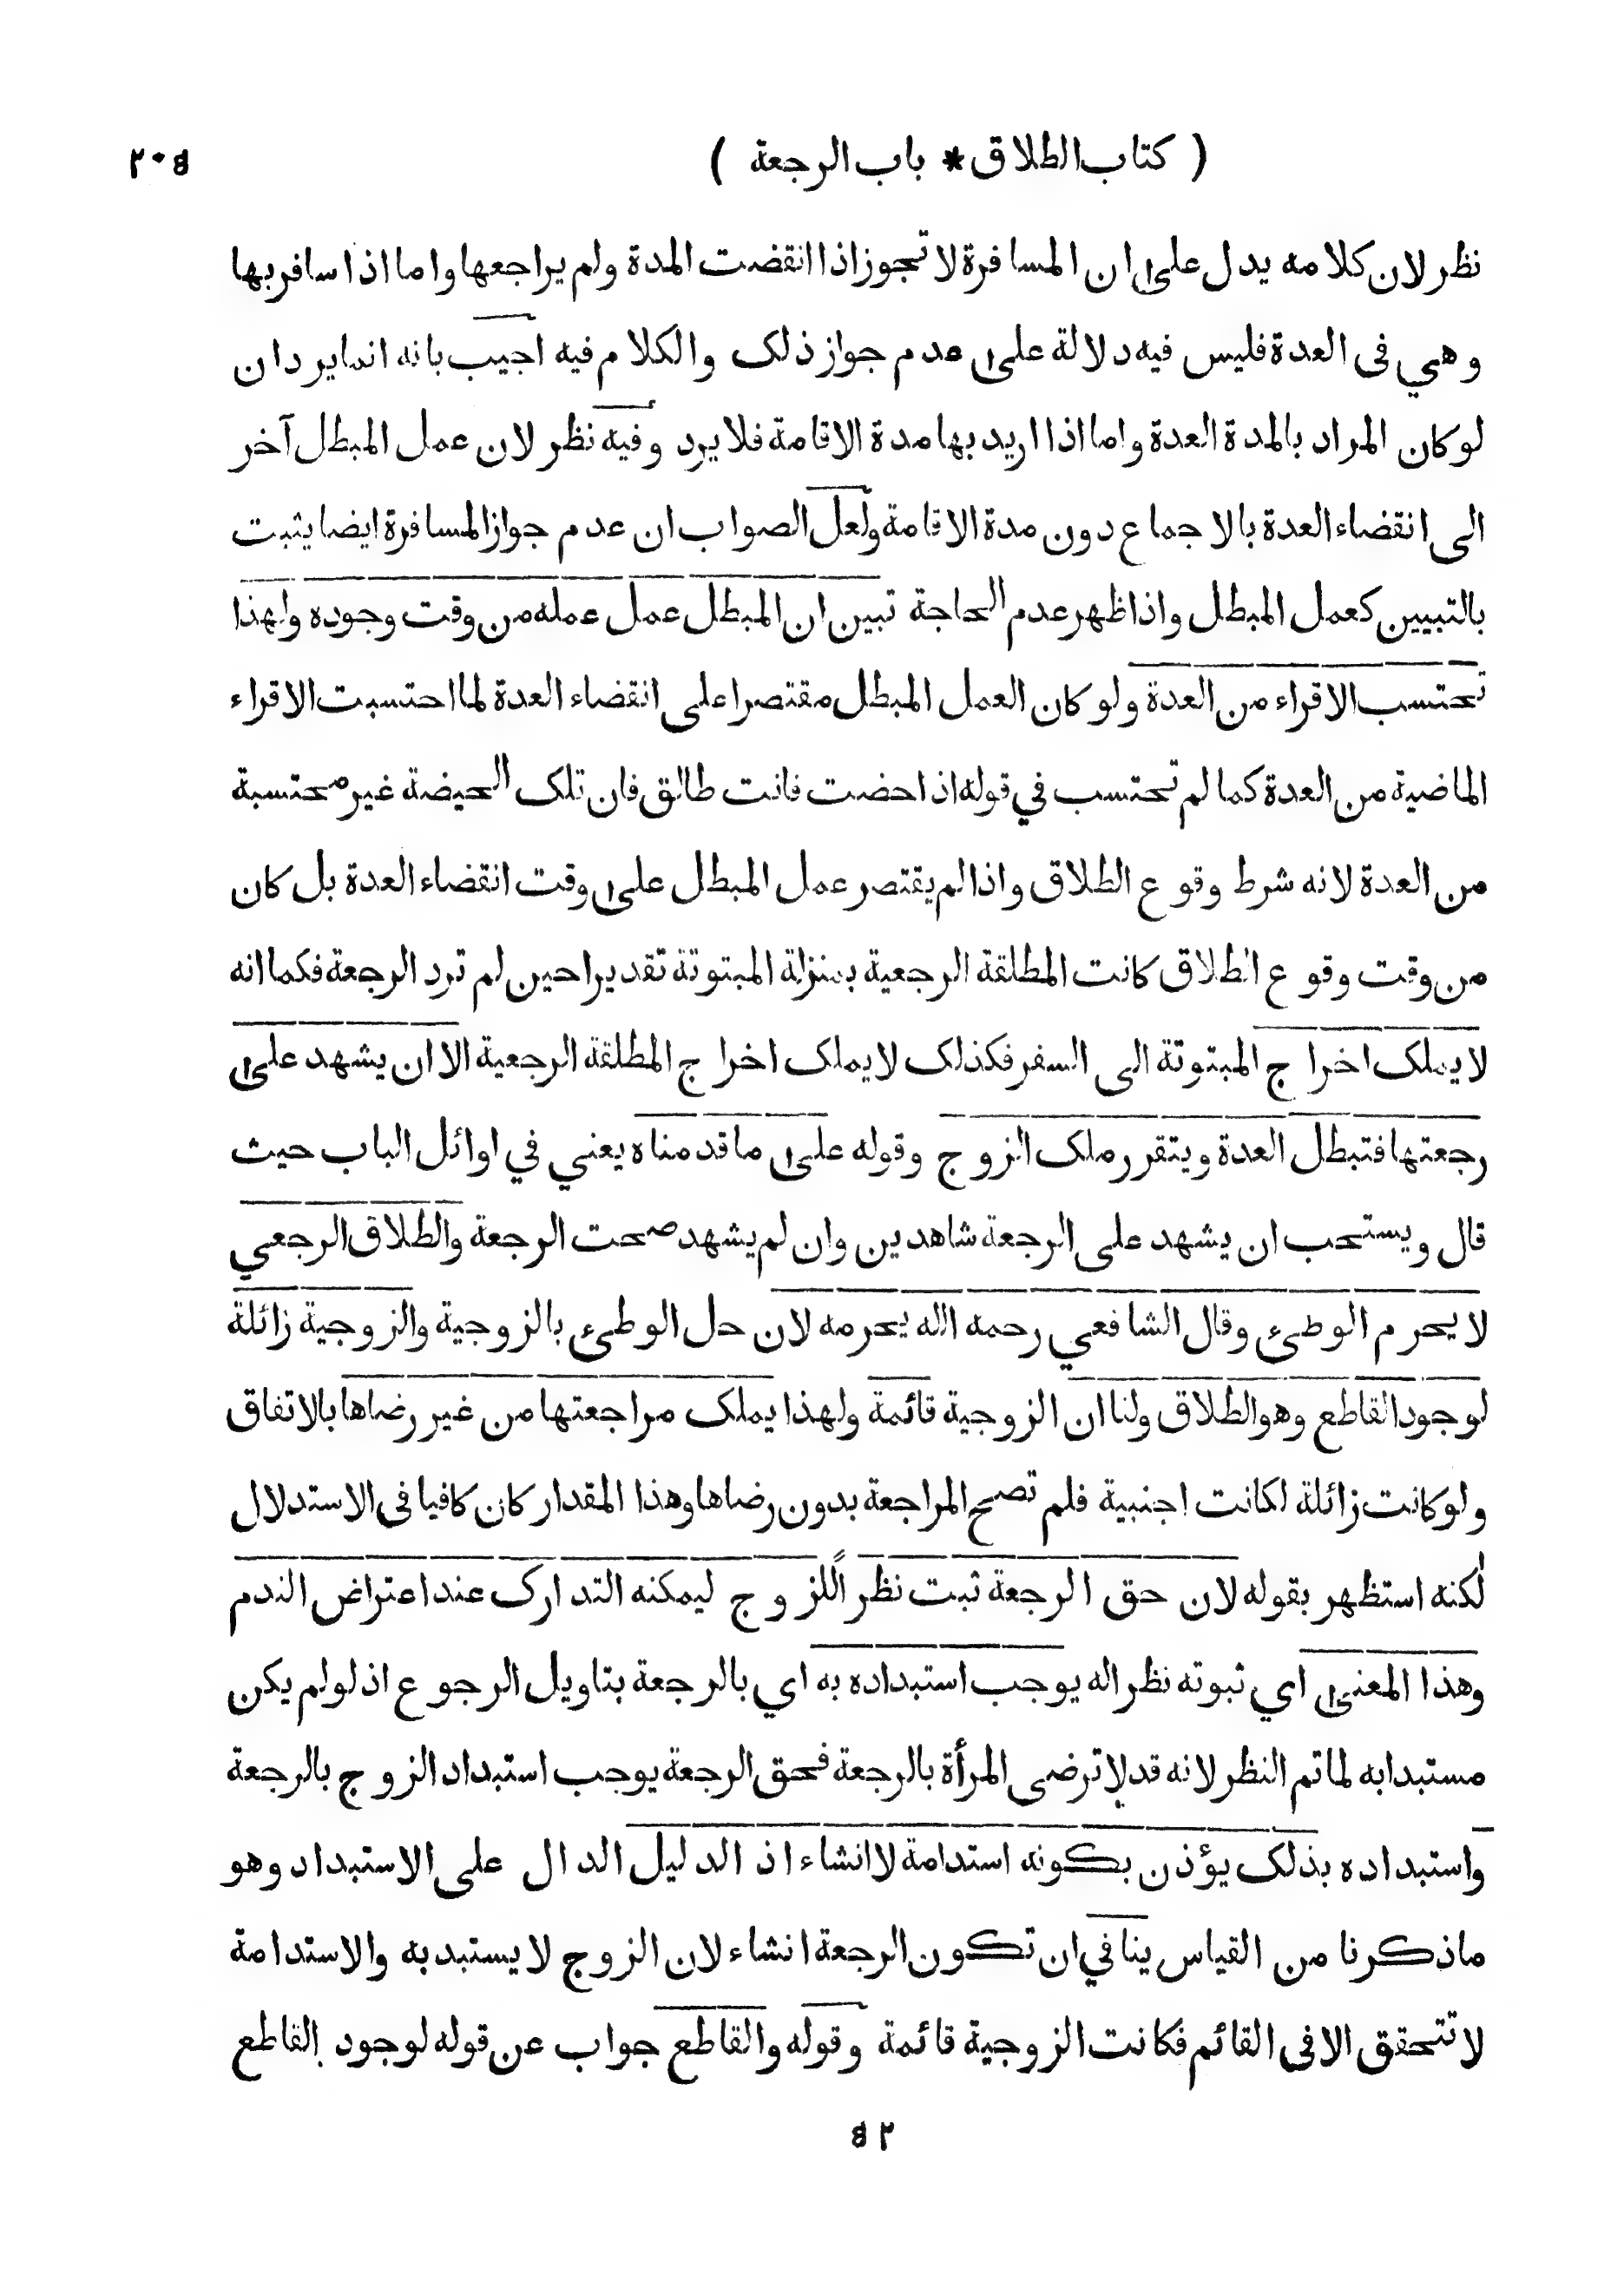 ( كتاب الطلاق * باب الرجعة )
٢٠٥
نظر لان كلامه يدل على ان المسافرة لا تجوز اذا انقضت المدة ولم يراجعها واما اذا سافر بها
وهي فى العدة فليس فيه دلالة على عدم جواز ذلك والكلام فيه اجيب بانه انما يرد ان
لو كان المراد بالمدة العدة واما اذا اريد بها مدة الاقامة فلا يرد وفيه نظر لان عمل المبطل آخر
الى انقضاء العدة بالاجماع دون مدة الاقامة ولعل الصواب ان عدم جواز المسافرة ايضا يثبت
بالتبيين كعمل المبطل واذا ظهر عدم الحاجة تبين ان المبطل عمل عمله من وقت وجوده ولهذا
تحتسب الاقراء من العدة ولو كان العمل المبطل مقتصرا على انقضاء العدة لما احتسبت الاقراء
الماضية من العدة كما لم تحتسب في قوله اذا حضت فانت طالق فان تلك الحيضة غير محتسبة
من العدة لانه شرط وقوع الطلاق واذا لم يقتصر عمل المبطل على وقت انقضاء العدة بل كان
من وقت وقوع الطلاق كانت المطلقة الرجعية بمنزلة المبتوتة تقديرا حين لم ترد الرجعة فكما انه
لا يملك اخراج المبتوتة الى السفر فكذلك لا يملك اخراج المطلقة الرجعية الا ان يشهد على
رجعتها فتبطل العدة ويتقرر ملك الزوج وقوله على ما قدمناه يعني في اوائل الباب حيث
قال ويستحب ان يشهد على الرجعة شاهدين وان لم يشهد صحت الرجعة والطلاق الرجعي
لا يحرم الوطىء وقال الشافعي رحمه الله يحرمه لان حل الوطىء بالزوجية والزوجية زائلة
لوجود القاطع وهو الطلاق ولنا ان الزوجية قائمة ولهذا يملك مراجعتها من غير رضاها بالاتفاق
ولو كانت زائلة لكانت اجنبية فلم تصح المراجعة بدون رضاها وهذا المقدار كان كافيا فى الاستدلال
لكنه استظهر بقوله لان حق الرجعة ثبت نظراً للزوج ليمكنه التدارك عند اعتراض الندم
وهذا المعنى اي ثبوته نظرا له يوجب استبداده به اي بالرجعة بتاويل الرجوع اذ لو لم يكن
مستبدا به لما تم النظر لانه قد لا ترضى المرأة بالرجعة فحق الرجعة يوجب استبداد الزوج بالرجعة
واستبداده بذلك يؤذن بكونه استدامة لا انشاء اذ الدليل الدال على الاستبداد وهو
ما ذكرنا من القياس ينافي ان تكون الرجعة انشاء لان الزوج لا يستبد به والاستدامة
لا تتحقق الا فى القائم فكانت الزوجية قائمة وقوله والقاطع جواب عن قوله لوجود القاطع
٥٢